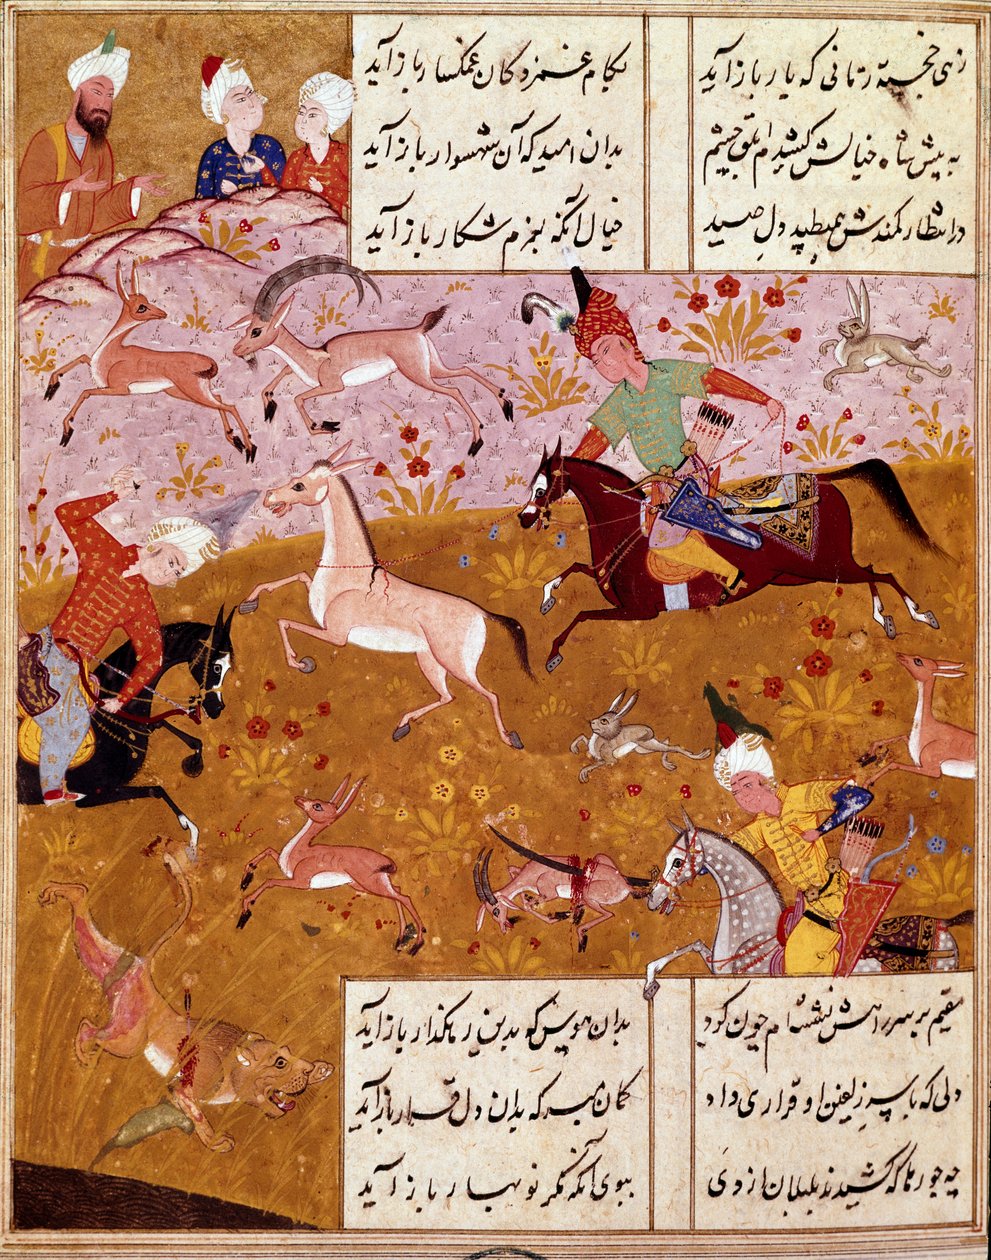 زهی خجسته زمانی که یار باز آید بکام غمزدکان غمکسار باز آید
به پیش شاه خیالش کشیدم ابلق چشم بدان امید که آن شهسوار باز آید
در انتظار کمندش همیطپد دل صید خیال آنکه بعزم شکار باز آید
مقیم بر سر راهش نشسته‌ام چون کرد بدان هوس که بدین رهکذار باز آید
دلی که با سر زلفین او قراری داد کمان مبر که بدان دل قرار باز آید
چه جورها که کشیدند بلبلان از دی ببوی آنکه دکر نوبهار باز آید